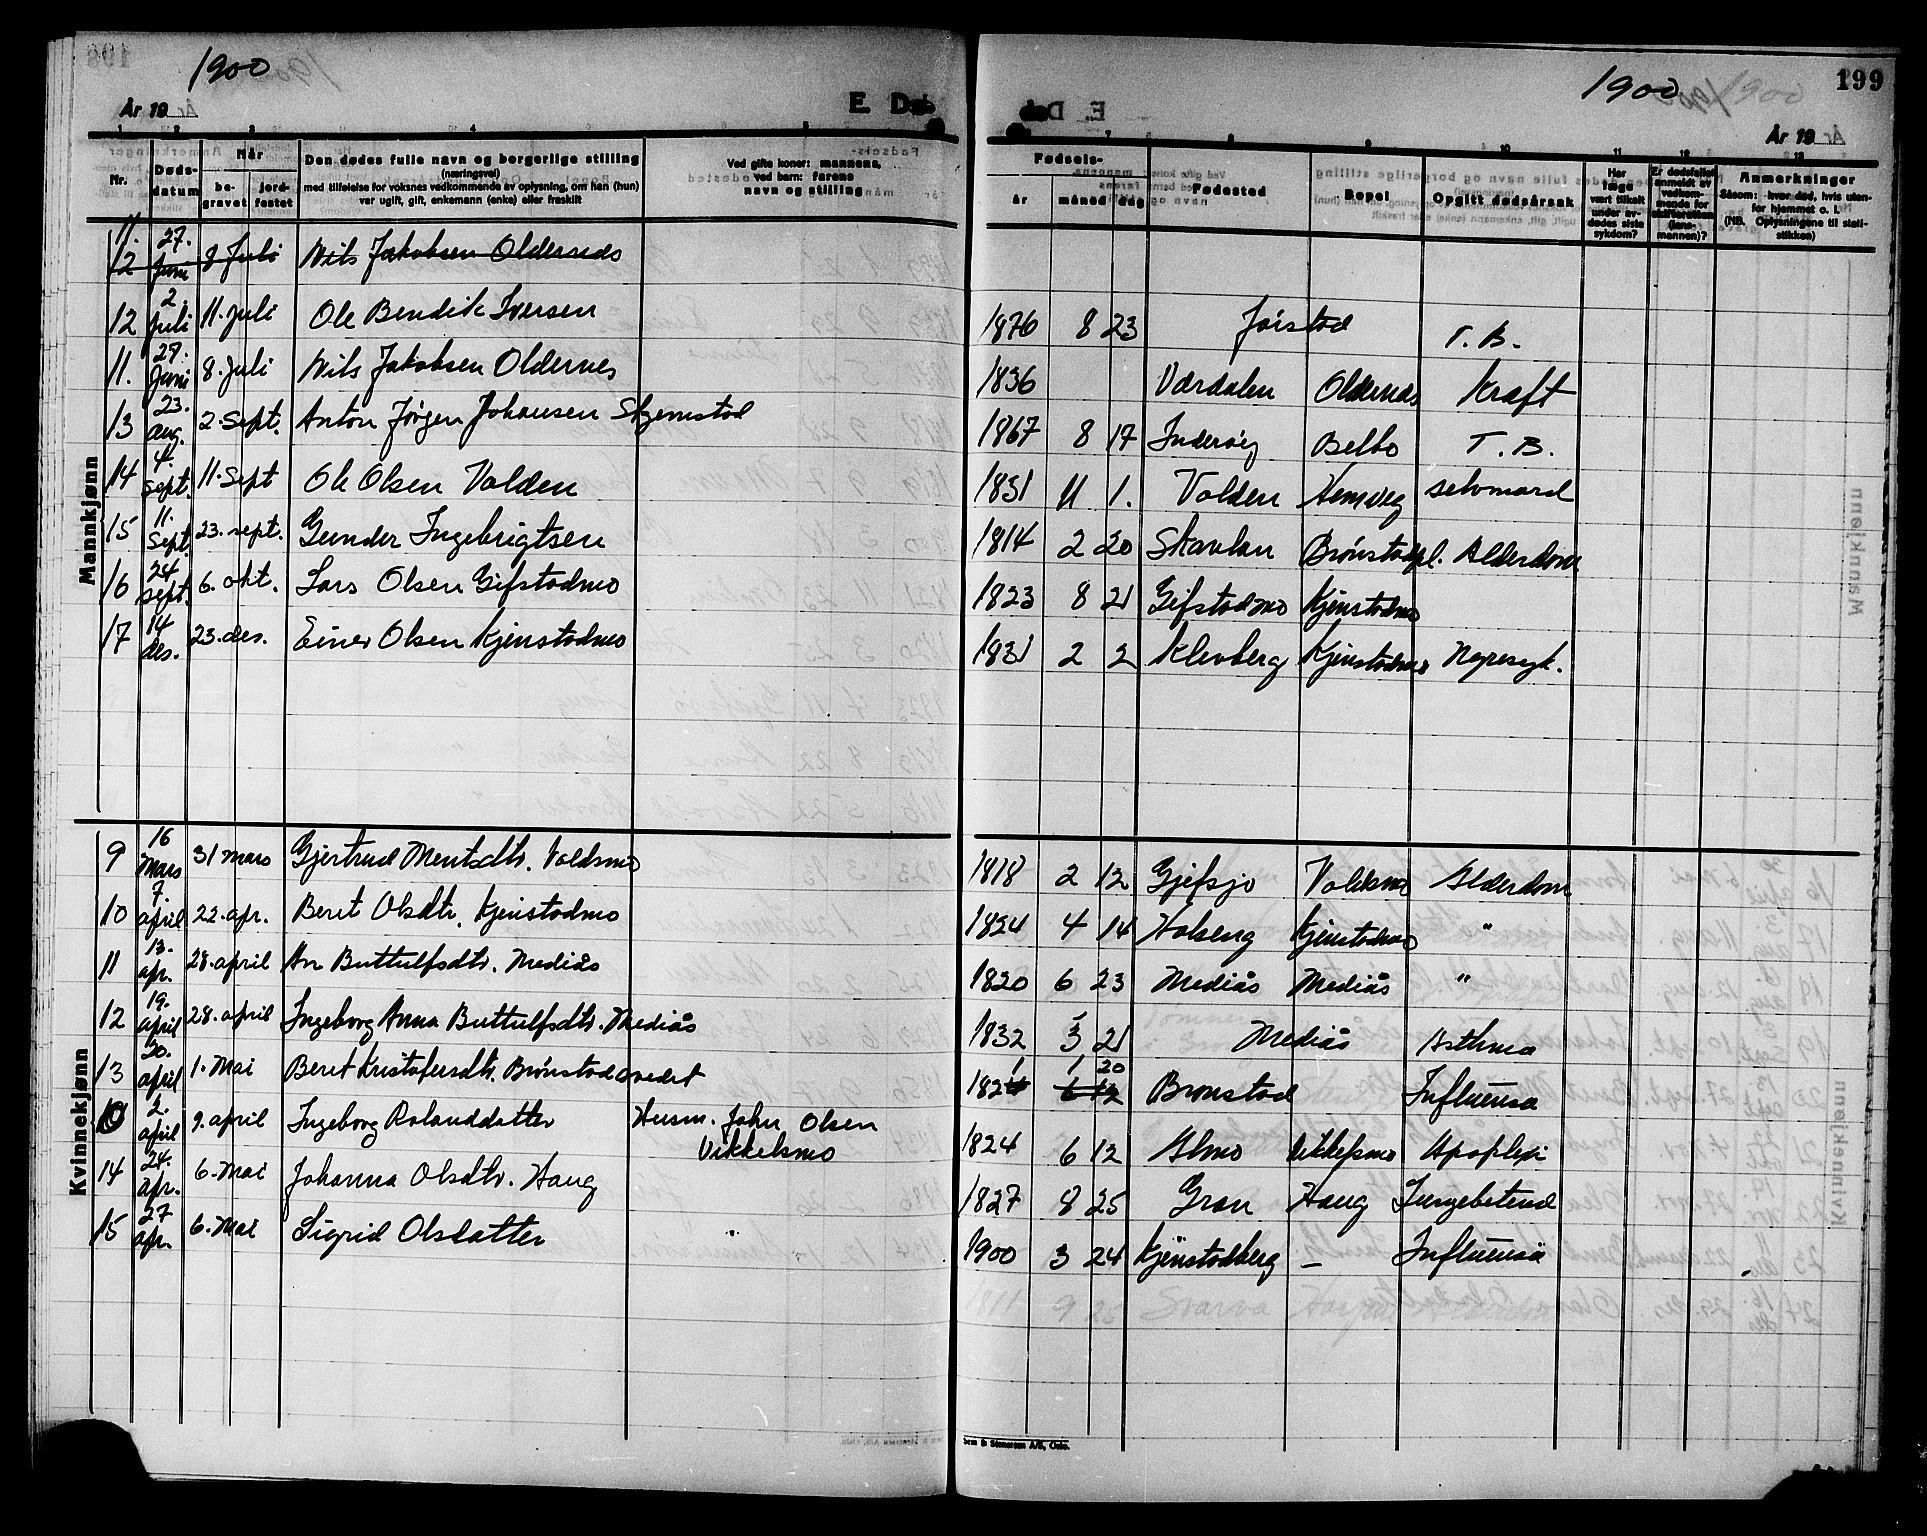 1900
År 19
E. Døde
1 2 3 4
Nr.
Døds-
datum
Når
be-
gravet
jord-
festet
Den dødes fulle navn og borgerlige stilling
(næringsvei)
med tilføielse for voksnes vedkommende av oplysning, om han (hun)
var ugift, gift, enkemann (enke) eller fraskilt
Ved gifte koner: mannens,
ved barn: farens
navn og stilling
Mannkjønn
12 27. Juni 8 Juli Nils Jakobsen Oldernes
12 2. Juli 11. Juli Ole Bendik Iversen
11. 27. Juni 8. Juli Nils Jakobsen Oldernes
13 23. aug. 2. Sept. Anton Jørgen Johansen Skjemstad
14 4. Sept. 11. Sept Ole Olsen Volden
15 11. Sept. 23. sept. Gunder Ingebrigtsen
16 24 sept. 6. okt. Lars Olsen Gifstadmo
17 14 des. 23. des. Einer Olsen Kjenstadmo
Kvinnekjønn
9 16 Mars 31 mars Gjertrud Mentsdtr. Valdsmo
10 7. april 22. apr. Beret Olsdtr. Kjenstadmo
11 13. apr. 28. april An Buttulfsdtr. Mediås
12 19. april 28. april Ingeborg Anna Buttulfsdtr. Mediås
13 20. april 1. Mai Beret Kristofersdtr. Brønstadsvedet
10 2. april 9. april Ingeborg Rolanddatter Husm. John Olsen
Vikkelsmo
14 24. apr. 6. Mai Johanna Olsdtr. Haug
15 27 apr. 6. Mai Sigrid Olsdatter "
1900
199
År 19
7 8 9 10 11 12 13
Fødsels-
år måned dag
Fødested
Bopel
Opgitt dødsårsak
Har
læge
vært tilkalt
under av-
dødes siste
sykdom?
Er dødsfallet
anmeldt av
vedkom-
mende for
skifteretten
(lens-
mannen)?
Anmerkninger
Såsom: hvor død, hvis uten-
for hjemmet o. l.
(NB. Oplysningene til stati-
stikken)
1876 8 23 Jørstad T. B.
1836 Værdalen Oldernes Kraft
1867 8 17 Inderøy Belbo T. B.
1831 11 1. Volden selvmord
1814 2 20 Skavlan Brønstadpl. Alderdom
1823 8 21 Gifstadmo Kjenstadmo
1831 2 2 Klevberg Kjenstadmo Nyresyk.
1818 2 12 Gjefsjø Valdsmo Alderdom
1824 4 14 Holseng Kjenstadmo "
1820 6 23 Mediås Mediås "
1832 3 21 Mediås Asthma
1821 1 20 Brønstad Influensa
1824 6 12 Almo Vikkelsmo Apoplexi
1827 8 25 Gran Haug Lungebetend
1900 3 24 Kjenstadberg — Influensa
Sem & Stenersen A/S, Oslo.